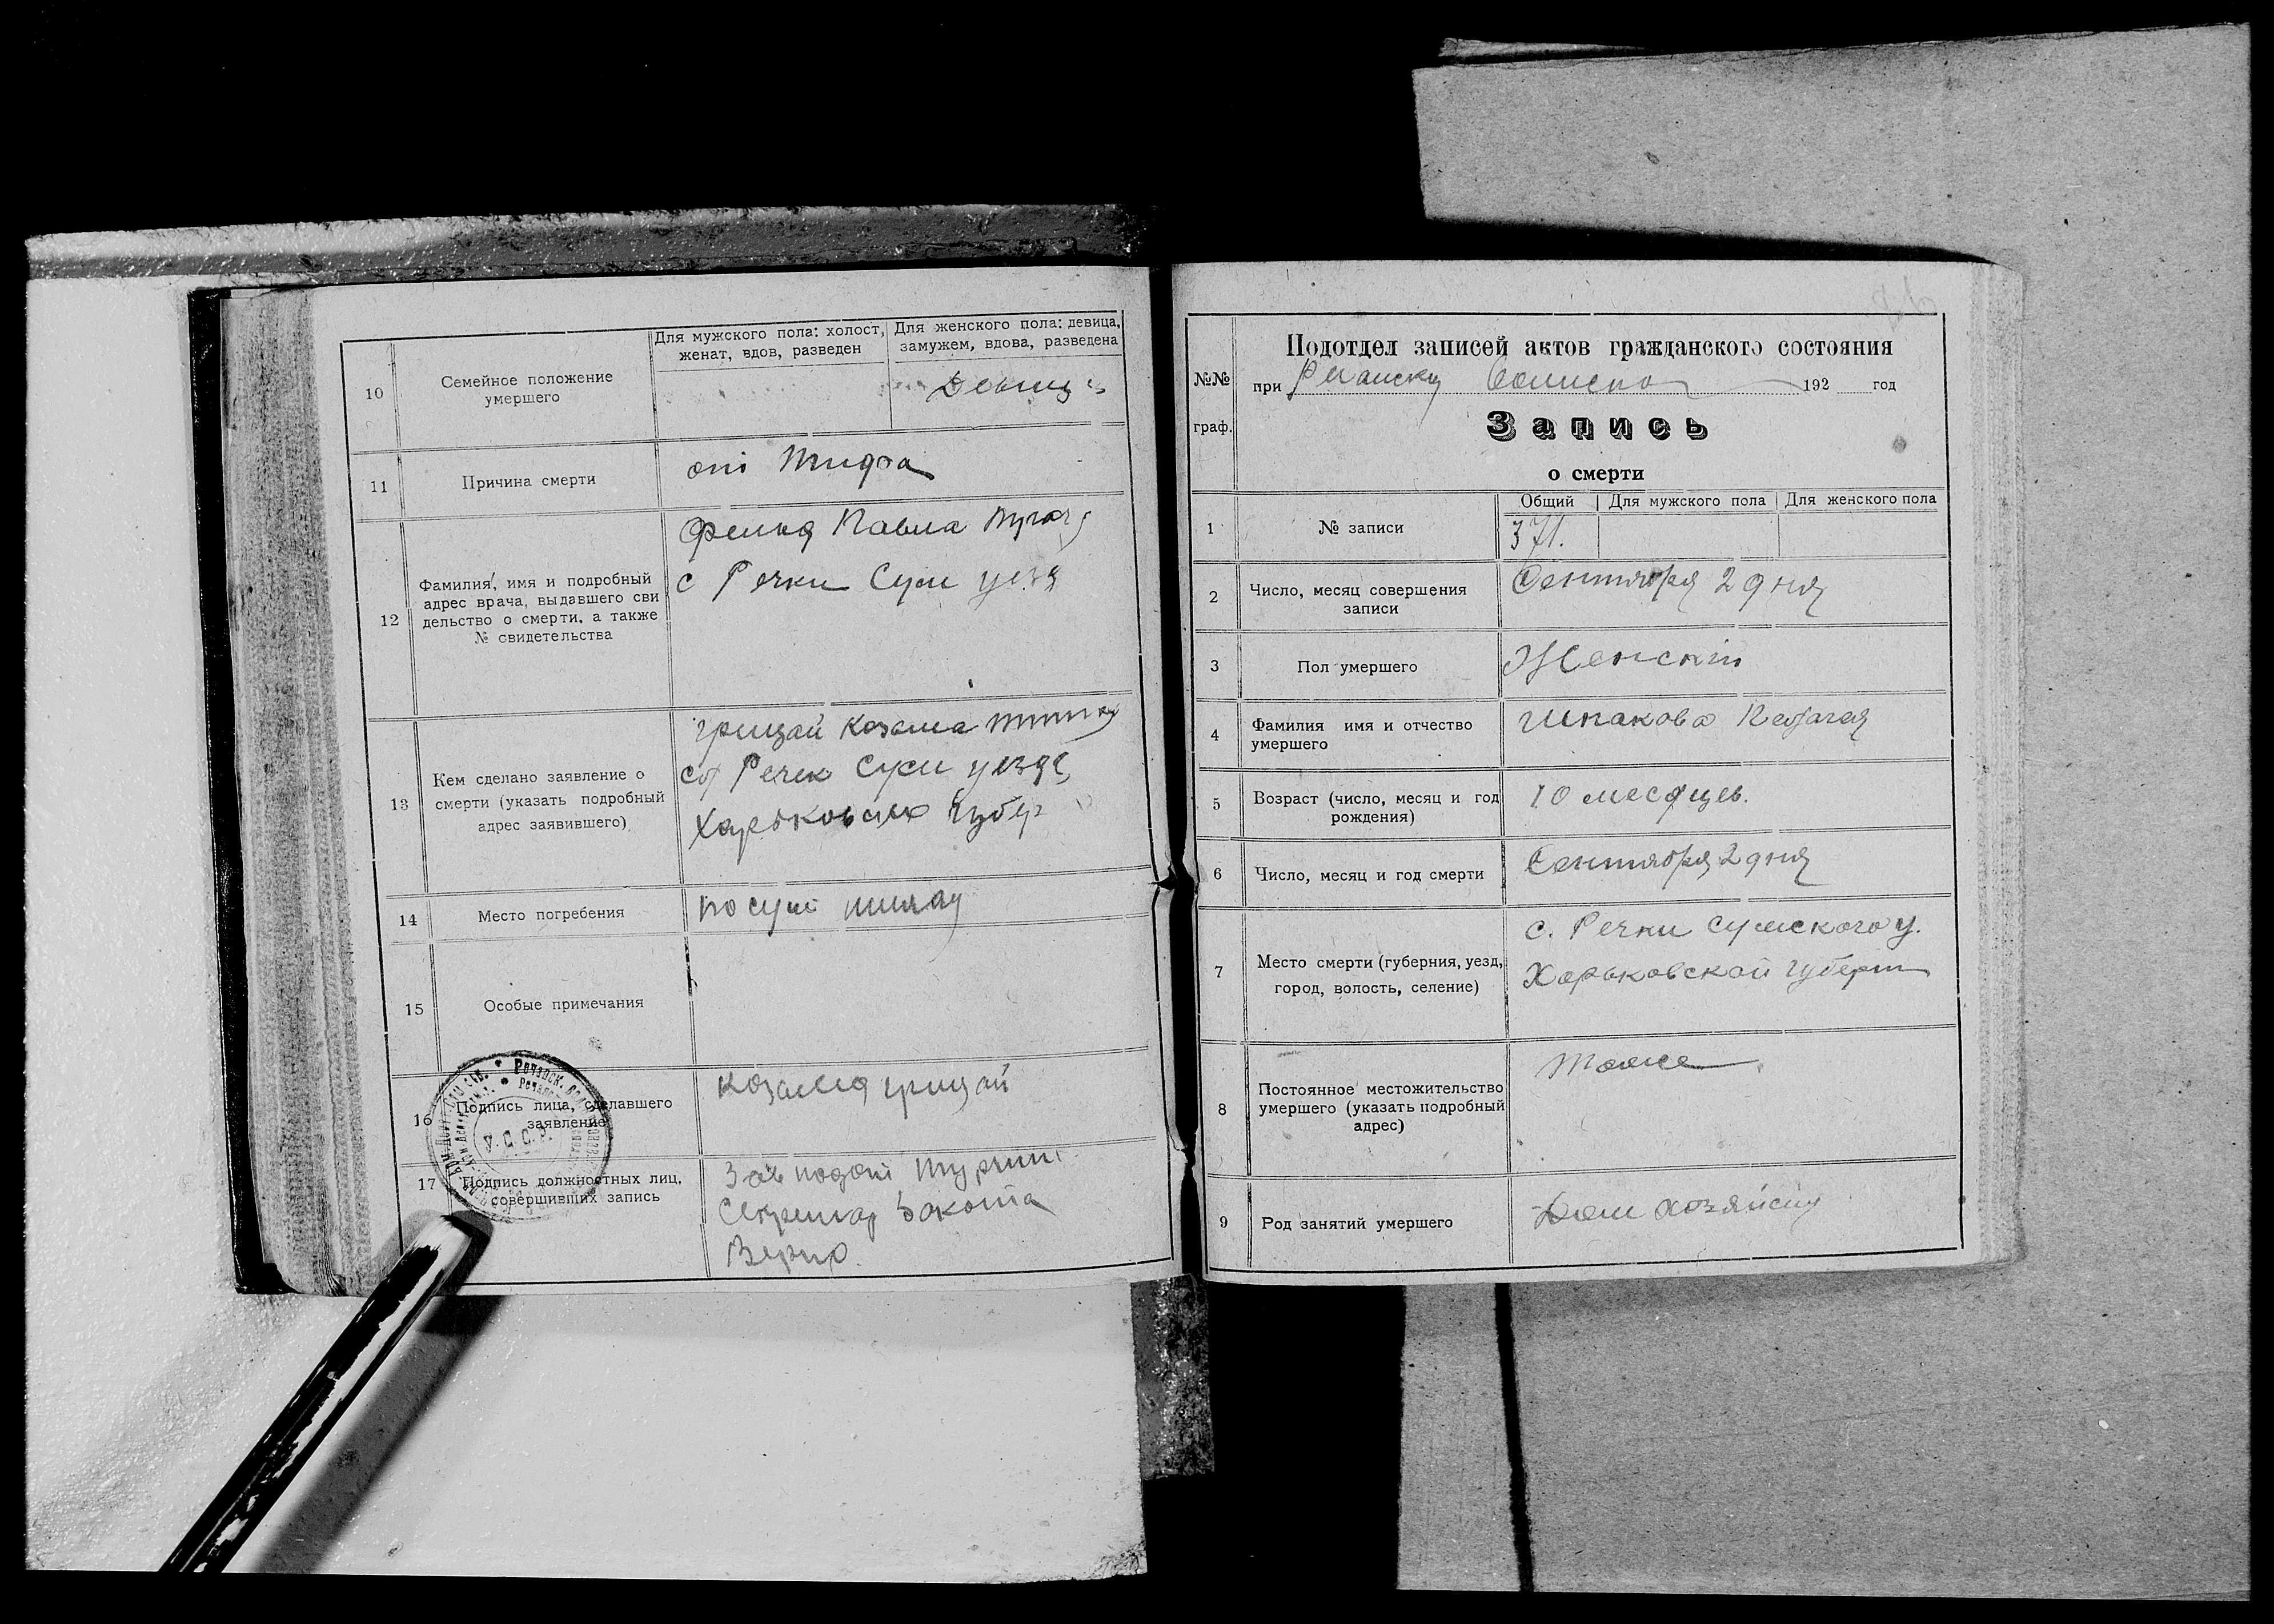 10
Семейное положение
умершего
Для мужского пола: холост,
женат, вдов, разведен
Для женского пола: девица,
замужем, вдова, разведена
Девица
11
Причина смерти
от тифа
12
Фамилия, имя и подробный
адрес врача, выдавшего сви
дельство о смерти, а также
№ свидетельства
Павла
с Речки Сум уезд
13
Кем сделано заявление о
смерти (указать подробный
адрес заявившего)
грицай Козьма
Речек Сум уезда
Харьковская губер
14
Место погребения
15
Особые примечания
16
Подпись лица, сделавшего
заявление
Козьма грицай
У. С. С. Р.
17
Подпись должностных лиц,
совершивших запись
Зав подот Турчин
Секретар Закота
Верно
№№
граф.
Подотдел записей актов гражданского состояния
при 192 год
Запись
о смерти
1
№ записи
Общий
Для мужского пола
Для женского пола
371.
2
Число, месяц совершения
записи
Сентября 2 дня
3
Пол умершего
Женский
4
Фамилия имя и отчество
умершего
Шпакова
5
Возраст (число, месяц и год
рождения)
10 месяцев.
6
Число, месяц и год смерти
Сентября 2 дня
7
Место смерти (губерния, уезд,
город, волость, селение)
с. Речки Сумского у.
Харьковской губерн
8
Постоянное местожительство
умершего (указать подробный
адрес)
тоже
9
Род занятий умершего
Дом хозяйств